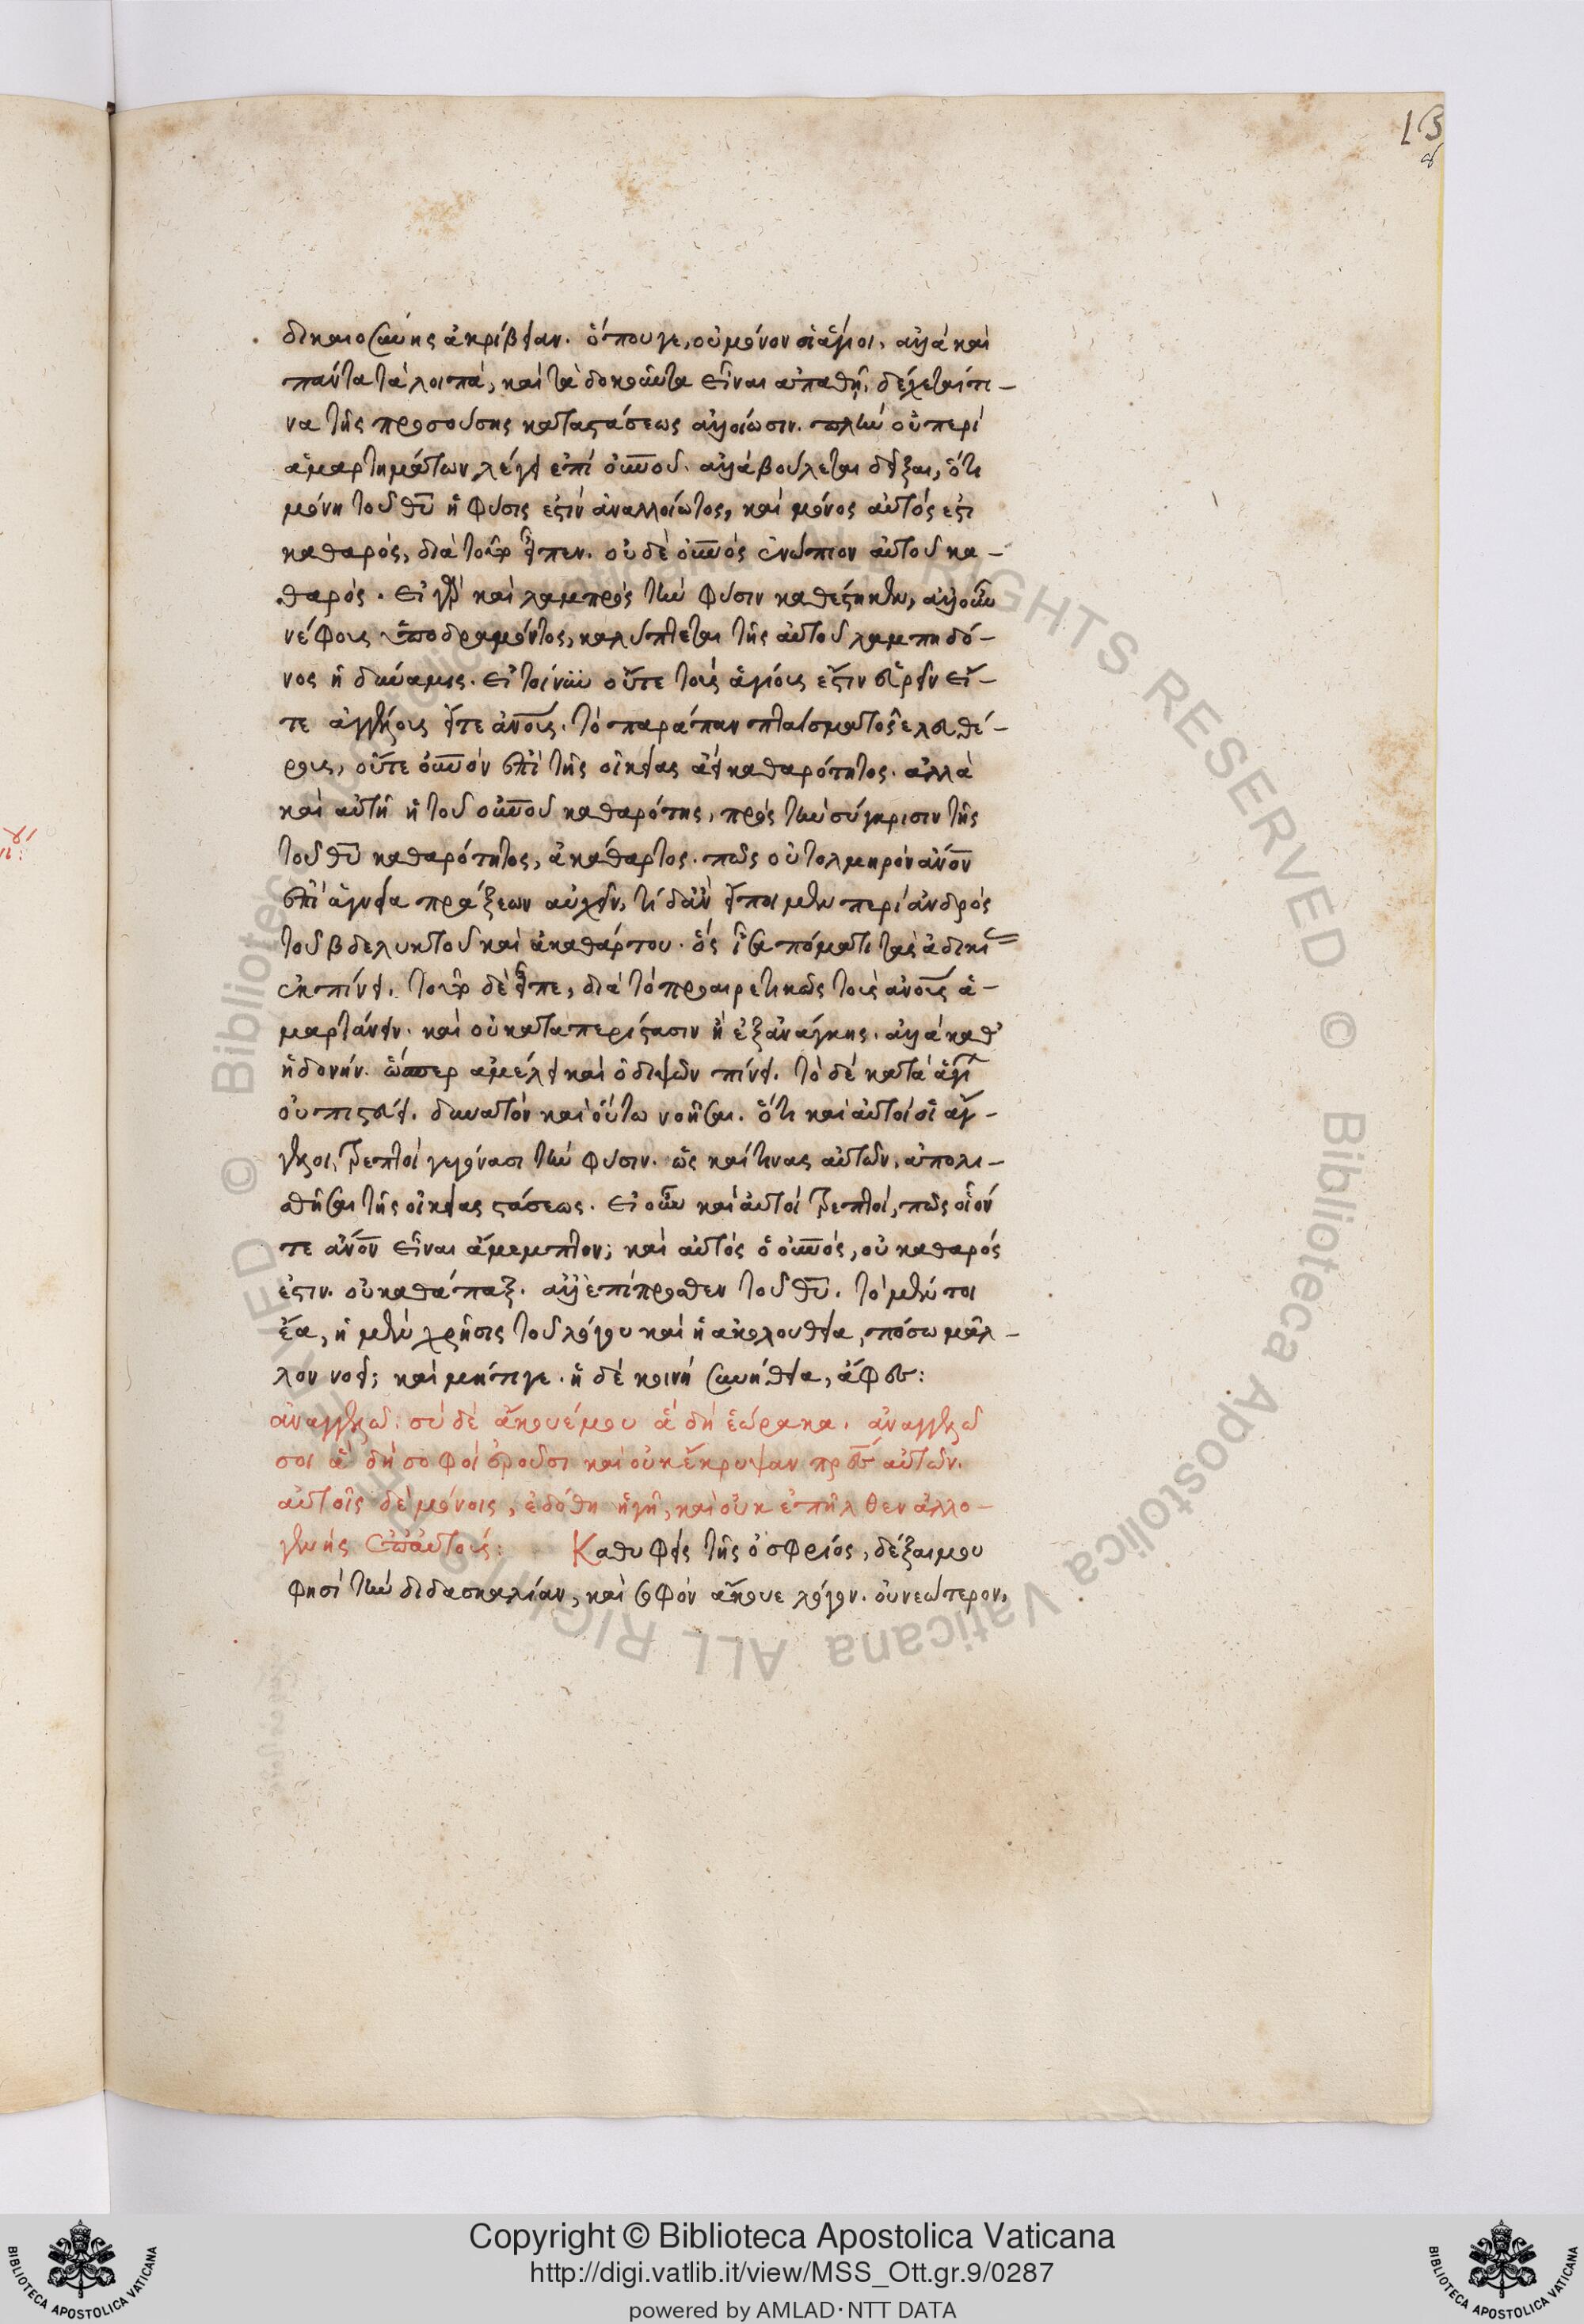 13
δικαιοσύνης ἀκρίβειαν. ὅπου γε, οὐ μόνον οἱ ἅγιοι, ἀλλὰ καὶ
πάντα τὰ λοιπὰ, καὶ τὰ δοκοῦντα εἶναι ἀπαθῆ, δέχεταί τι–
να τῆς προσούσης καταστάσεως ἀλλοίωσιν. πλὴν οὐ περὶ
ἁμαρτημάτων λέγει ἐπὶ οὐνοῦ. ἀλλὰ βούλεται δεῖξαι, ὅτι
μόνη τοῦ θυ ἡ φύσις ἐστὶν ἀναλλοίωτος, καὶ μόνος αὐτός ἐστι
καθαρός, διὰ τοῦτο εἶπεν. οὐδὲ οὐνος ἐνώπιον αὐτοῦ κα–
θαρός. εἰ γὰρ καὶ λαμπρὸς τὴν φύσιν καθέστηκεν, ἀλλ' οὖν
νέφους ὑποδραμόντος, καλύπτεται τῆς αὐτοῦ λαμπηδό–
νος ἡ δύναμις. εἰ τοίνυν οὔτε τοὺς ἁγίους ἔστιν εὑρεῖν εἴ–
τε ἀγγέλους εἴτε ανους. τὸ παράπαν πταίσματος ἐλευθέ–
ρους, οὔτε οὐνον ἐπὶ τῆς οἰκείας ἀεὶ καθαρότητος. ἀλλὰ
καὶ αὐτὴ ἡ τοῦ οὐνοῦ καθαρότης, πρὸς τὴν σύγκρισιν τῆς
τοῦ θυ καθαρότητος, ἀκάθαρτος. πῶς οὐ τολμηρὸν ανον
ἐπὶ ἁγνεία πράξεων αὐχεῖν, τί δ' ἂν εἴποιμεν περὶ ἀνδρὸς
τοῦ βδελυκτοῦ καὶ ἀκαθάρτου. ὃς ἴσα πόματι τὰς ἀδικί
ἐκπίνει. τοῦτο δὲ εἶπε, διὰ τὸ προαιρετικῶς τοὺς ανους ἁ–
μαρτάνειν. καὶ οὐ κατὰ περίστασιν ἢ ἐξ ἀνάγκης. ἀλλὰ καθ'
ἡδονήν. ὥσπερ ἀμέλει καὶ ὁ διψῶν πίνει. τὸ δὲ κατὰ ἁγί
οὐ πιστεύει. δυνατὸν καὶ οὕτω νοῆσαι. ὅτι καὶ αὐτοὶ οἱ ἄγ–
γελοι, τρεπτοὶ γεγόνασι τὴν φύσιν. ὡς καί τινας αὐτῶν, ἀπολι–
σθῆσαι τῆς οἰκείας στάσεως. εἰ οὖν καὶ αὐτοὶ τρεπτοί, πῶς οἷόν
τε ανον εἶναι ἄμεμπτον; καὶ αὐτὸς ὁ οὐνος, οὐ καθαρός
ἐστιν. οὐ καθάπαξ. ἀλλ' ἐπίπροσθεν τοῦ θυ. τὸ μέντοι
ἔα, ἡ μὲν χρῆσις τοῦ λόγου καὶ ἡ ἀκολουθία, πόσω μᾶλ–
λον νοεῖ; καὶ μήτιγε. ἡ δὲ κοινὴ συνήθεια, ἄφες:
ἀναγγελῶ. σὺ δὲ ἄκουέ μου ἃ δὴ ἑώρακα. ἀναγγελῶ
σοι ἃ δὴ σοφοὶ ἐροῦσι καὶ οὐκ ἔκρυψαν πρες αὐτῶν.
αὐτοῖς δὲ μόνοις, ἐδόθη ἡ γῆ, καὶ οὐκ ἐπῆλθεν ἀλλο–
γενὴς ἐπ' αὐτούς: Καθυφεὶς τῆς ὀσφρύος, δέξαι μου
φησὶ τὴν διδασκαλίαν, καὶ σοφὸν ἄκουε λόγον. οὐ νεώτερον,
Copyright © Biblioteca Apostolica Vaticana
http://digi.vatlib.it/view/MSS_Ott.gr.9/0287
powered by AMLAD·NTT DATA